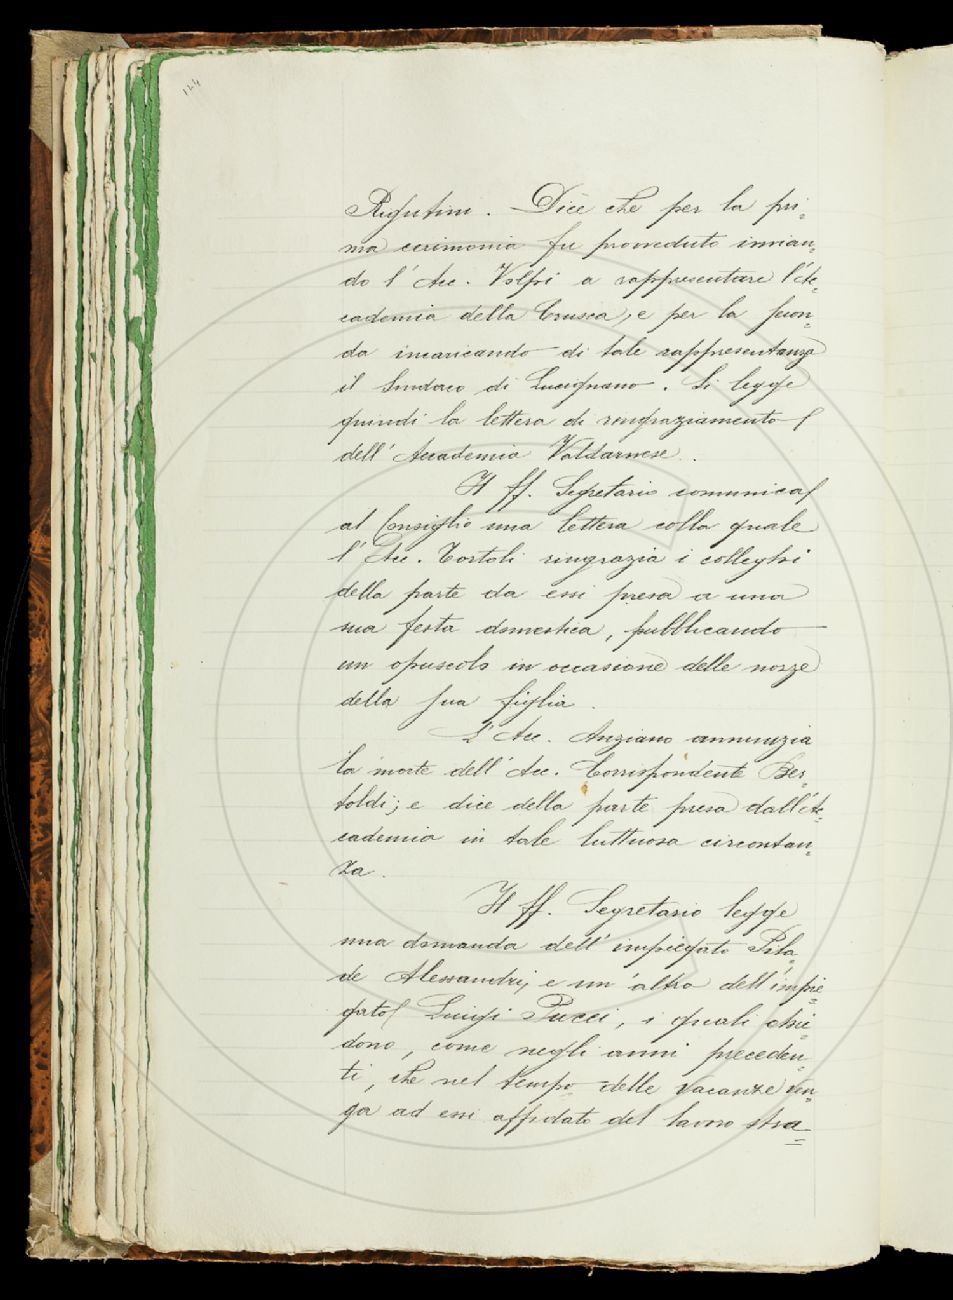 124
Rigutini. Dice che per la pri=
ma cerimonia fu provveduto invian=
do l'Acc. Volpi a rappresentare l'Ac=
cademia della Crusca, e per la secon=
da incaricando di tale rappresentanza
il Sindaco di Lucignano. Si legge
quindi la lettera di ringraziamento
dell'Accademia Valdarnese.
Il ff. Segretario comunica
al Consiglio una lettera colla quale
l'Acc. Tortoli ringrazia i colleghi
della parte da essi presa a una
sua festa domestica, pubblicando
un opuscolo in occasione delle nozze
della sua figlia.
L'Acc. Anziano annunzia
la morte dell'Acc. Corrispondente Ber=
toldi; e dice della parte presa dall'Ac=
cademia in tale luttuosa circostan=
za.
Il ff. Segretario legge
una domanda dell'impiegato Pila=
de Alessandri, e un'altra dell'impie=
gato Luigi Pucci, i quali chie=
dono, come negli anni preceden=
ti, che nel tempo delle vacanze ven=
ga ad essi affidato del lavoro stra=